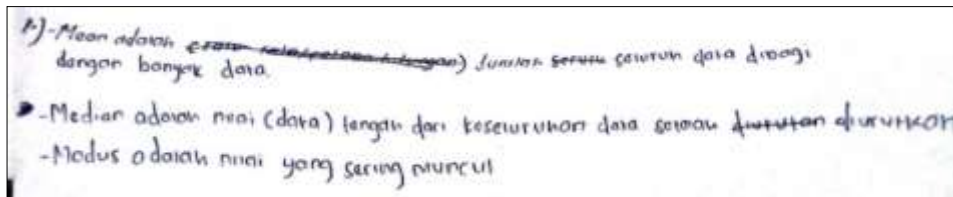 1.) - Mean adalah jumlah seluruh data dibagi
dengan banyak data.
- Median adalah nilai (data) tengah dari keseluruhan data setelah diurutkan
- Modus adalah nilai yang sering muncul